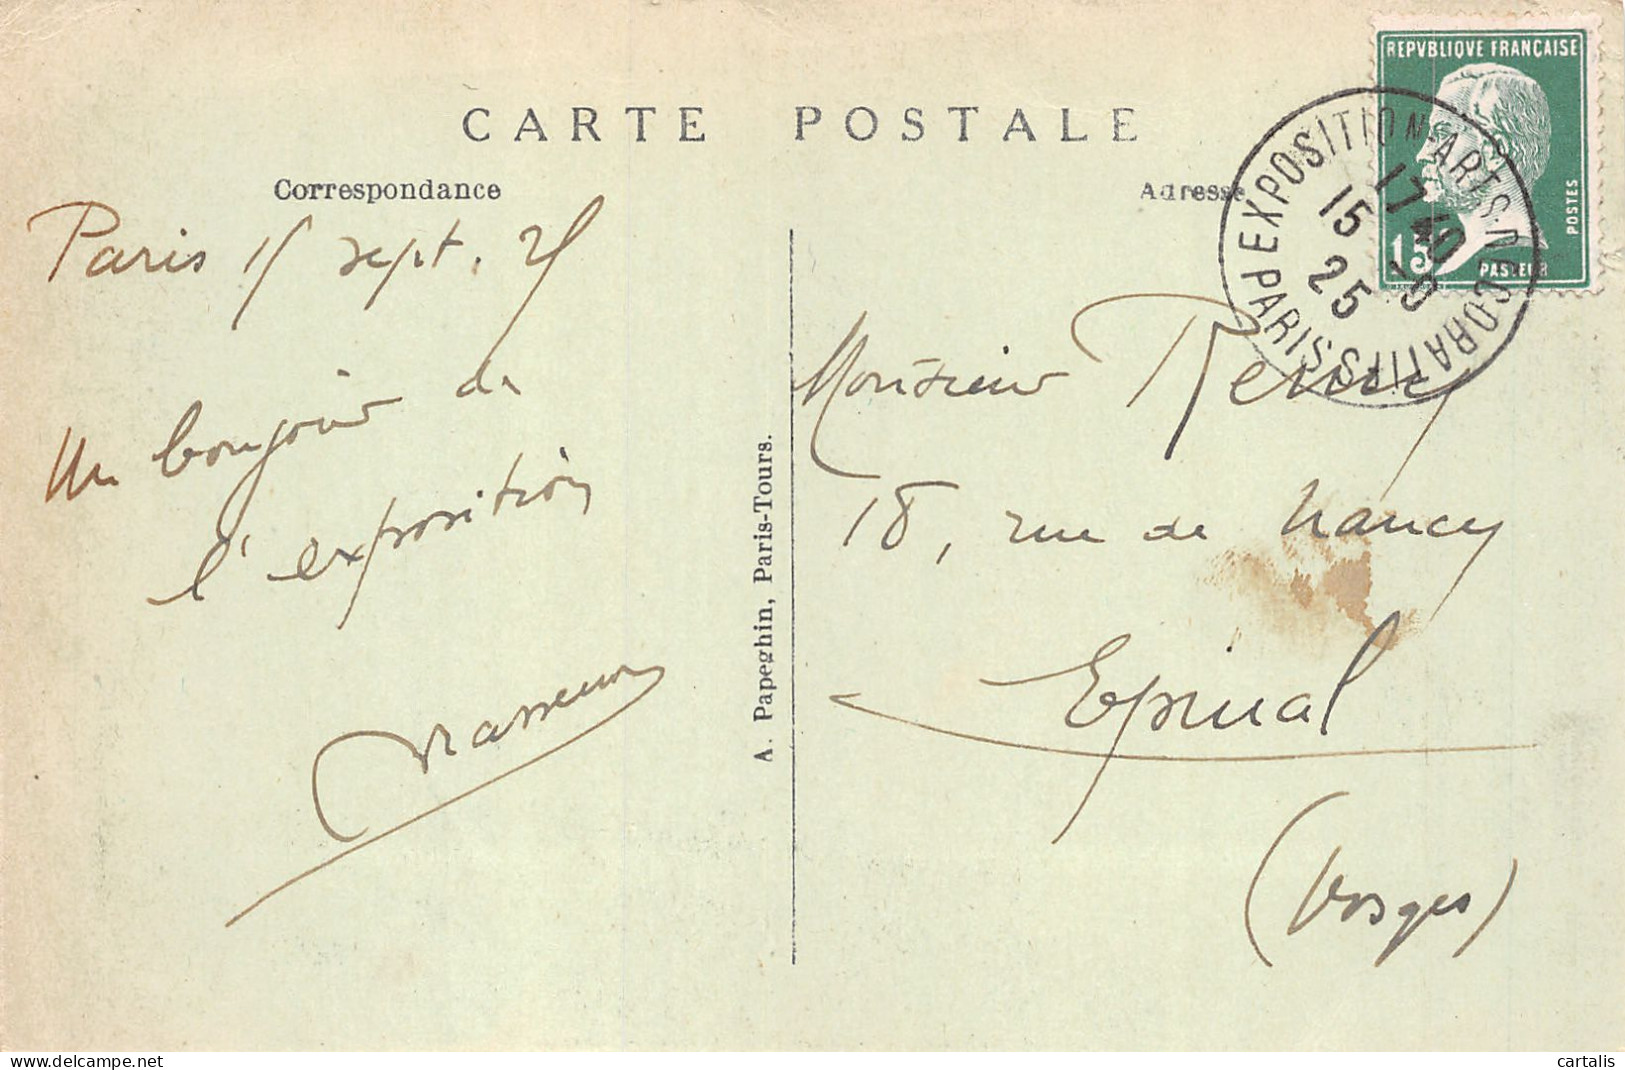 CARTE POSTALE
Correspondance
Paris 15 sept. 25
Un bonjour de
l'exposition
A. Papeghin, Paris-Tours.
Adresse
REPVBLIQVE FRANÇAISE
POSTES
15
PASTEUR
EXPOSITION-ARTS-DECORATIFS
PARIS
17 40
15
25
Monsieur Remy
18, rue de Nancy
Epinal
(Vosges)
cartalis